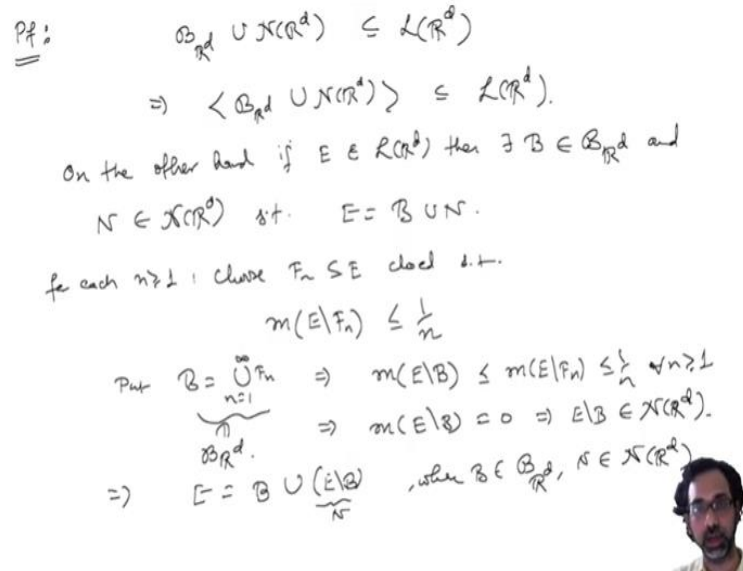 Pf:
𝓑_{ℝ^d} ∪ 𝓝(ℝ^d) ⊆ 𝓛(ℝ^d)
⇒ < 𝓑_{ℝ^d} ∪ 𝓝(ℝ^d) > ⊆ 𝓛(ℝ^d).
On the other hand if E ∈ 𝓛(ℝ^d) then ∃ B ∈ 𝓑_{ℝ^d} and
N ∈ 𝓝(ℝ^d) s.t. E = B ∪ N.
for each n≥1, choose F_n ⊆ E closed s.t.
m(E\F_n) ≤ 1/n
Put B = ∪_{n=1}^{∞} F_n ⇒ m(E\B) ≤ m(E\F_n) ≤ 1/n ∀n≥1
∈ 𝓑_{ℝ^d}. ⇒ m(E\B) = 0 ⇒ E\B ∈ 𝓝(ℝ^d).
⇒ E = B ∪ (E\B), where B ∈ 𝓑_{ℝ^d}, N ∈ 𝓝(ℝ^d)
N